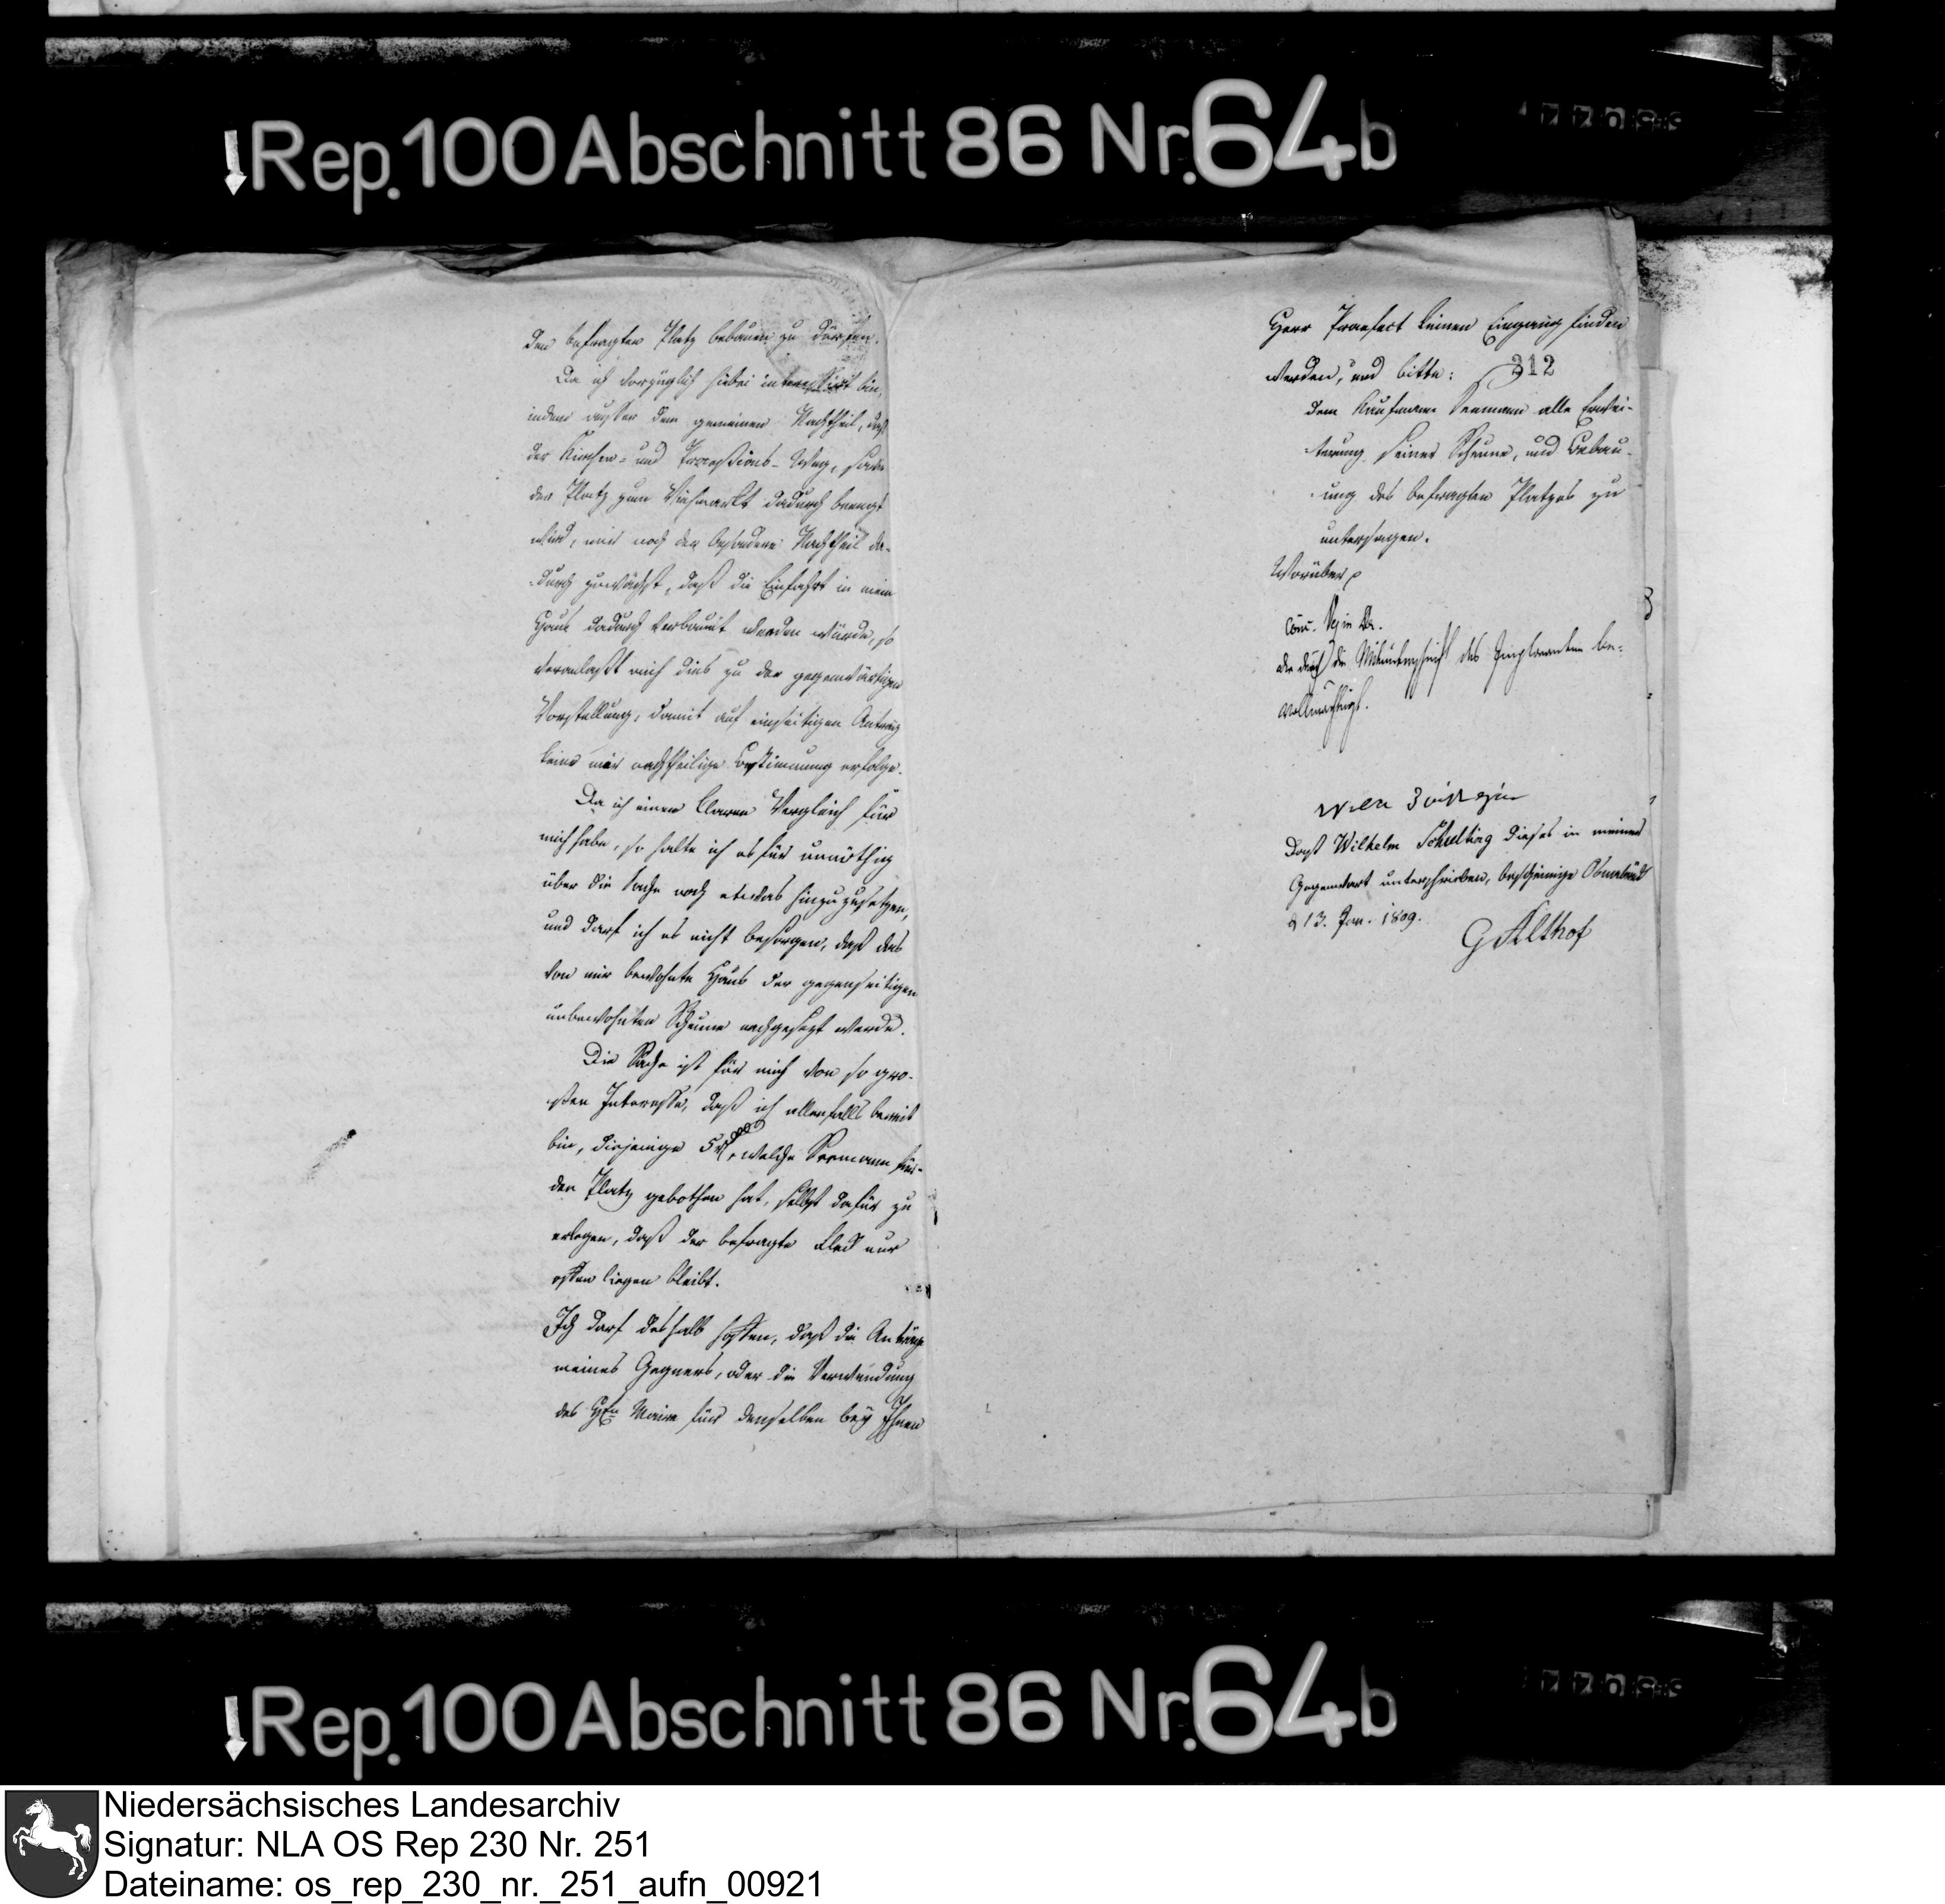 Rep. 100 Abschnitt 86 Nr. 64b
den befragten Platz bebauen zu dürfen.
Da ich vorzüglich hiebei interessirt bin,
indem ausser dem gemeinen Nachtheil, daß
der Kirchen- und Processions-Weg, sowie
der Platz zum Viehmarkt dadurch beengt
wird, mir noch der besondere Nachtheil da-
durch zuwächst, daß die Einfahrt in mein
Haus dadurch verbauet werden würde, so
veranlaßt mich dies zu der gegenwärtigen
Vorstellung, damit auf einseitigen Antrag
keine mir nachtheilige Bestimmung erfolge.
Da ich einen klaren Vergleich für
mich habe, so halte ich es für unnöthig
über die Sache noch etwas hinzuzusetzen,
und darf ich es nicht besorgen, daß das
von mir bewohnte Haus der gegenseitigen
unbewohnten Scheune nachgesezt werde.
Die Sache ist für mich von so gro-
ßen Interesse, daß ich allenfalls bereit
bin, diejenige 5 welche Seemann für
den Platz gebothen hat, selbst dafür zu
erlegen, daß der befragte Fleck nur
offen liegen bleibt.
Ich darf deshalb hoffen, daß die Anträge
meines Gegners, oder die Verwendung
des Hrn Maire für denselben bey Ihnen
Herr Praefect keinen Eingang finden
werden, und bitte:
312
dem Kaufmann Seemann alle Erwei-
terung seiner Scheune, und Bebau-
ung des befragten Platzes zu
untersagen.
Worüber
die durch die Mitunterschrift des Imploranten be-
vollmächtigt.
Daß Wilhelm Schulting dieses in meiner
Gegenwart unterschrieben, bescheinige Osnabrück
d 13. Jan. 1809.
G Althof
Rep. 100 Abschnitt 86 Nr. 64b
Niedersächsisches Landesarchiv
Signatur: NLA OS Rep 230 Nr. 251
Dateiname: os_rep_230_nr._251_aufn_00921